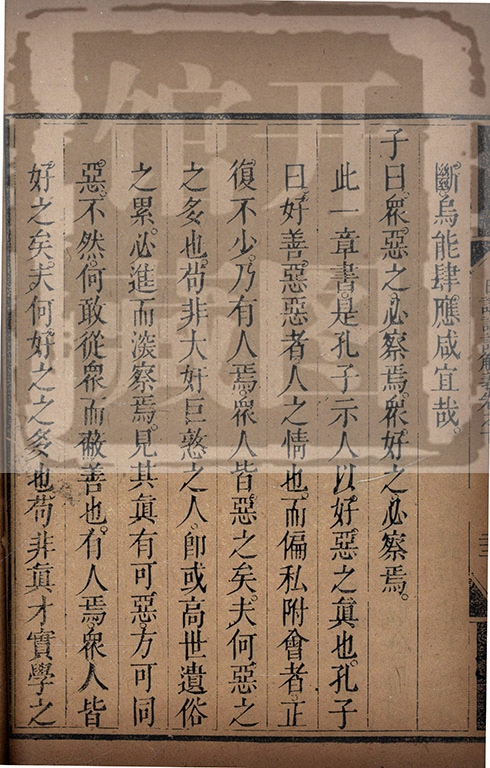 斷烏能肆應咸宜哉。
子曰。衆惡之必察焉。衆好之必察焉。
此一章書。是孔子示人以好惡之眞也。孔子
曰。好善惡惡者。人之情也。而偏私附會者。正
復不少。乃有人焉。衆人皆惡之矣。夫何惡之
之多也。茍非大奸巨憝之人。卽或高世遺俗
之累。必進而深察焉。見其眞有可惡。方可同
惡。不然。何敢從衆而蔽善也。有人焉。衆人皆
好之矣。夫何好之之多也茍非眞才實學之